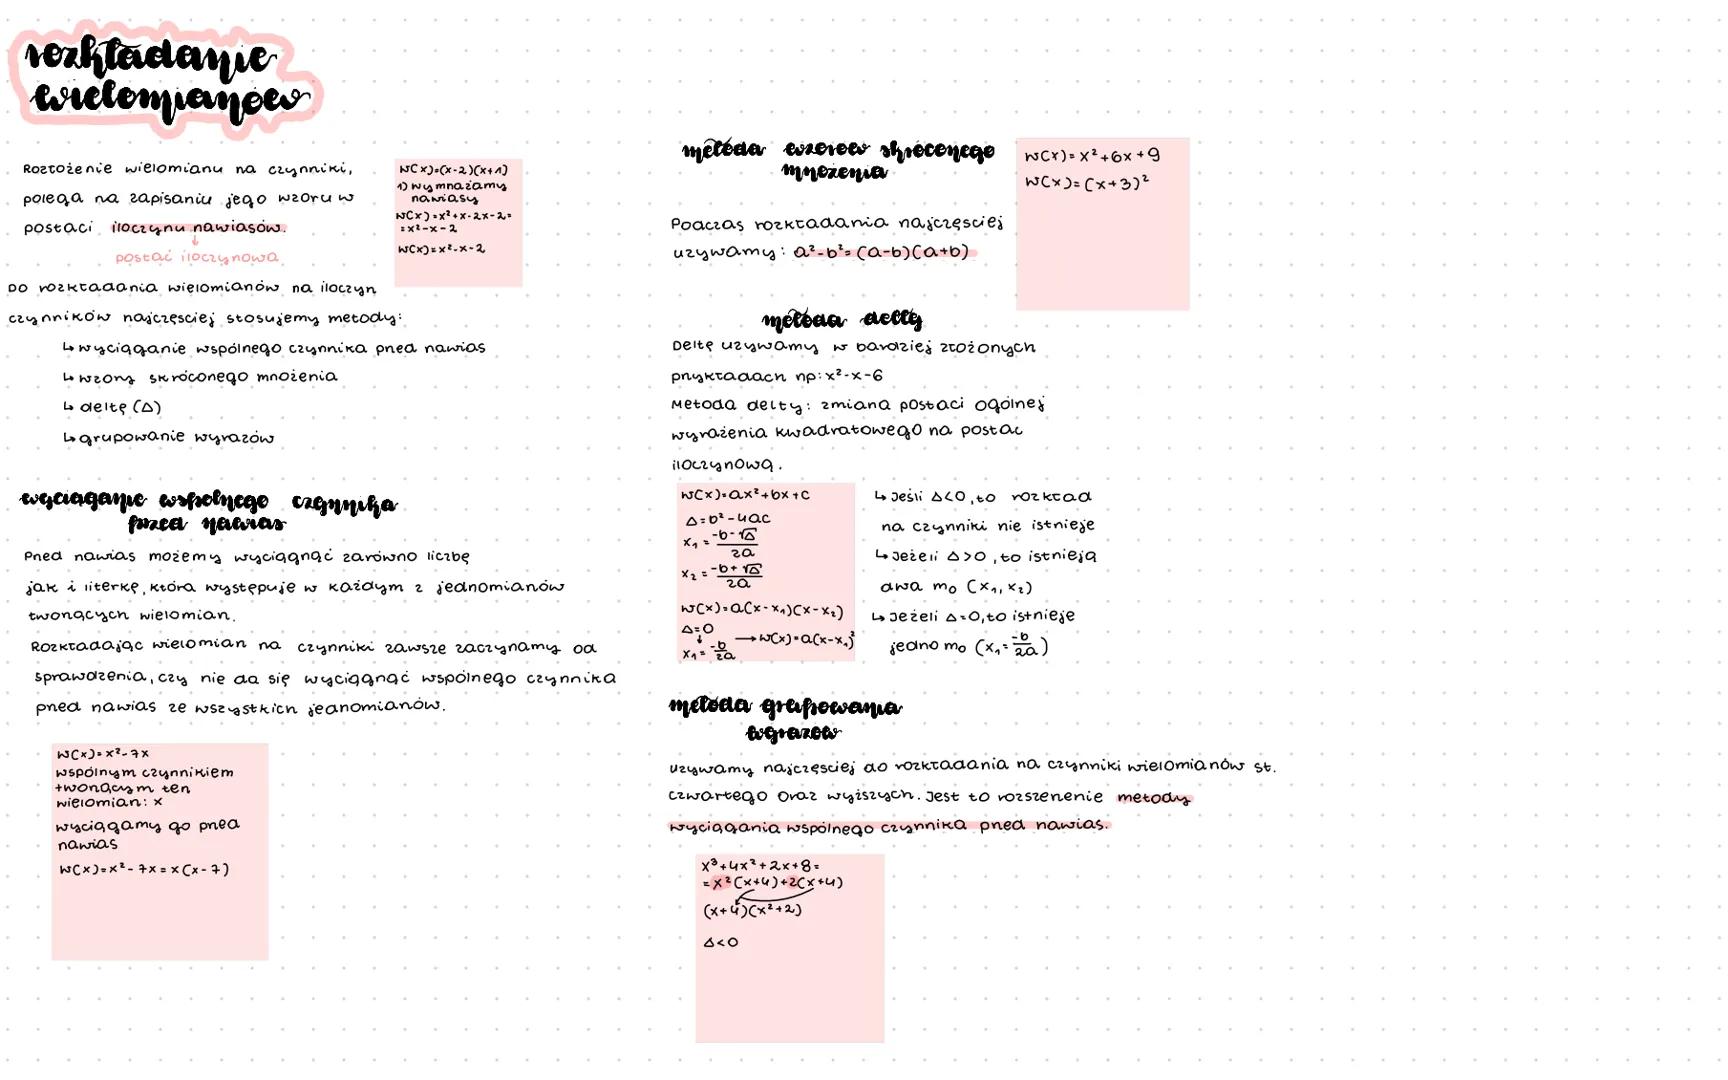 rozkładanie
wielomianów
Rozłożenie wielomianu na czynniki,
polega na zapisaniu jego wzoru w
postaci iloczynu nawiasów.
↓
postać iloczynowa
W(x)=(x-2)(x+1)
1) wymnażamy
nawiasy
W(x)=x²+x-2x-2=
=x²-x-2
W(x)=x²-x-2
Do rozkładania wielomianów na iloczyn
czynników najczęsciej stosujemy metody:
↳ wyciąganie wspólnego czynnika przed nawias
↳ wzory skróconego mnożenia
↳ deltę (Δ)
↳ grupowanie wyrazów
wyciąganie wspólnego czynnika
przed nawias
Przed nawias możemy wyciągnąć zarówno liczbę
jak i literkę, która występuje w każdym z jednomianów
tworzących wielomian.
Rozkładając wielomian na czynniki zawsze zaczynamy od
sprawdzenia, czy nie da się wyciągnąć wspólnego czynnika
przed nawias ze wszystkich jednomianów.
W(x)=x²-7x
wspólnym czynnikiem
tworzącym ten
wielomian: x
wyciągamy go przed
nawias
W(x)=x²-7x=x(x-7)
metoda wzorów skróconego
mnożenia
Podczas rozkładania najczęsciej
uzywamy: a²-b²=(a-b)(a+b)
W(x)=x²+6x+9
W(x)=(x+3)²
metoda delty
Deltę uzywamy w bardziej złożonych
przykładach np: x²-x-6
Metoda delty: zmiana postaci ogólnej
wyrażenia kwadratowego na postać
iloczynową.
W(x)=ax²+bx+c
Δ=b²-4ac
x₁=\frac{-b-√Δ}{2a}
x₂=\frac{-b+√Δ}{2a}
W(x)=a(x-x₁)(x-x₂)
Δ=0
↓ → W(x)=a(x-x₁)²
x₁=\frac{-b}{2a}
↳ Jeśli Δ<0, to rozkład
na czynniki nie istnieje
↳ Jeżeli Δ>0, to istnieją
dwa m₀ (x₁, x₂)
↳ Jeżeli Δ=0, to istnieje
jedno m₀ (x₁=\frac{-b}{2a})
metoda grupowania
wyrazów
Uzywamy najczęsciej do rozkładania na czynniki wielomianów st.
czwartego oraz wyższych. Jest to rozszerzenie metody
wyciągania wspólnego czynnika przed nawias.
x³+4x²+2x+8=
=x²(x+4)+2(x+4)
(x+4)(x²+2)
Δ<0